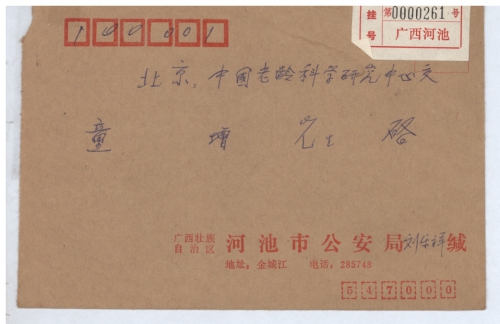 100001
挂 第0000261号
号 广西河池
北京,中国老龄科学研究中心交
童 增 先生 启
广西壮族
自治区 河池市公安局 刘乐祥 缄
地址:金城江 电话:285748
547000